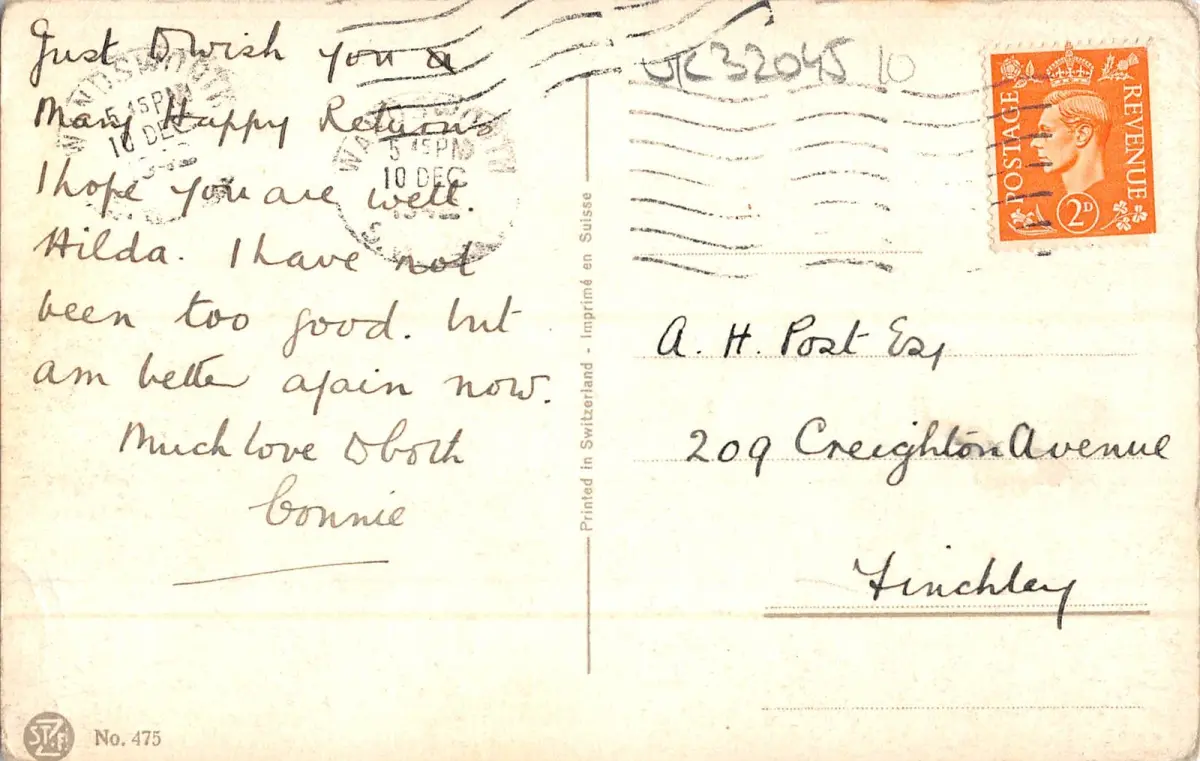 Just to wish you a
Many Happy Returns
I hope you are well.
Hilda. I have not
been too good. but
am better again now.
Much love to both
Connie
WANDSWORTH
5.15PM
10 DEC
WANDSWORTH
5.15PM
10 DEC
S.W.
Printed in Switzerland - Imprimé en Suisse
UK32045 10
POSTAGE
REVENUE
2D
A. H. Post Esq
209 Creighton Avenue
Finchley
No. 475